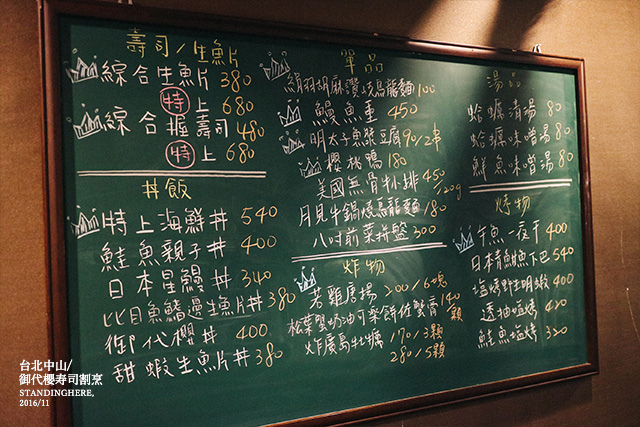 壽司/生魚片
綜合生魚片 380
特上 680
綜合握壽司 480
特上 680
丼飯
特上海鮮丼 540
鮭魚親子丼 400
日本星鰻丼 340
比目魚鰭邊生魚片丼 380
御代櫻丼 400
甜蝦生魚片丼 380
單品
絹羽胡麻讚岐烏龍麵 100
鰻魚重 450
明太子魚漿豆腐 90/2串
櫻桃鴨 180
美國無骨牛小排 450/120g
月見牛鍋燒烏龍麵 180
八吋前菜拼盤 300
炸物
若雞唐揚 200/6塊
松葉蟹奶油可樂餅佐蟹膏 140/顆
炸廣島牡蠣 170/3顆
280/5顆
湯品
蛤蠣清湯 80
蛤蠣味噌湯 80
鮮魚味噌湯 80
烤物
午魚一夜干 400
日本青魽魚下巴 540
塩烤野生明蝦 400
透抽塩烤 420
鮭魚塩烤 320
台北中山/
御代櫻寿司割烹
STANDINGHERE,
2016/11